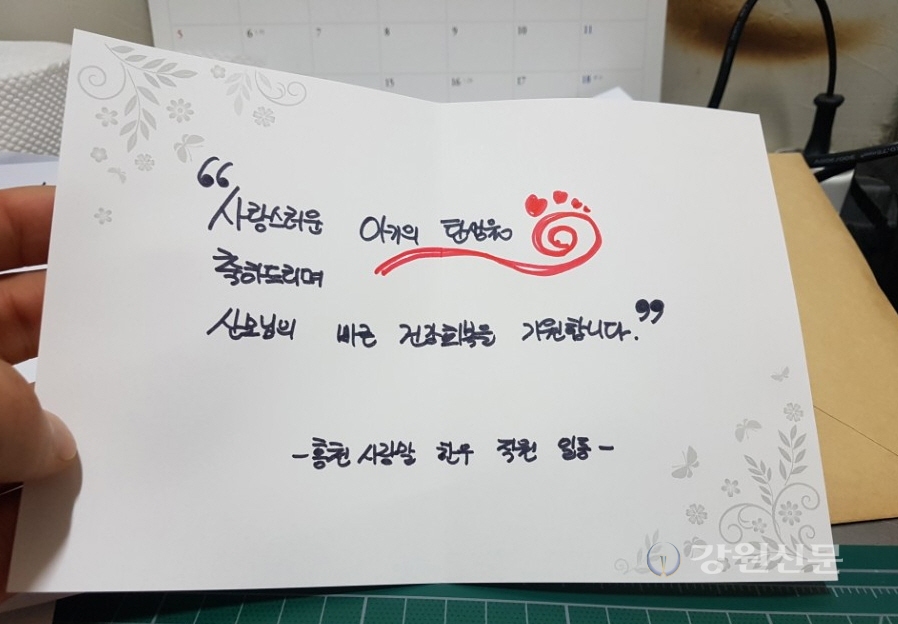 5 6 7 8 9 10 11
15 16 17 18
“사랑스러운 아가의 탄생을
축하드리며
산모님의 빠른 건강회복을 기원합니다.”
-홍천 사랑말 한우 직원 일동-
강원신문